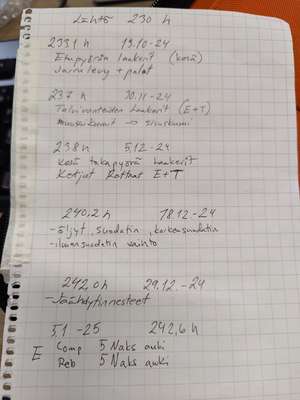 Lähtö 230 h
233,1 h 19.10-24
Etupyörän Laakerit (kesä)
Jarrulevy + palat
237 h 30.11-24
Talvi vanteiden Laakerit (E+T)
muovikorvat → sivutkumi
238 h 5.12-24
kesä takapyörä Laakerit
Ketjut Rattaat E+T
240,2 h 18.12-24
- öljyt, suodatin, karkeasuodatin
- ilmansuodatin vaihto
242,0 h 29.12-24
- Jäähdytinnesteet
5.1-25 242,6 h
E Comp 5 Naks auki
Reb 5 Naks auki